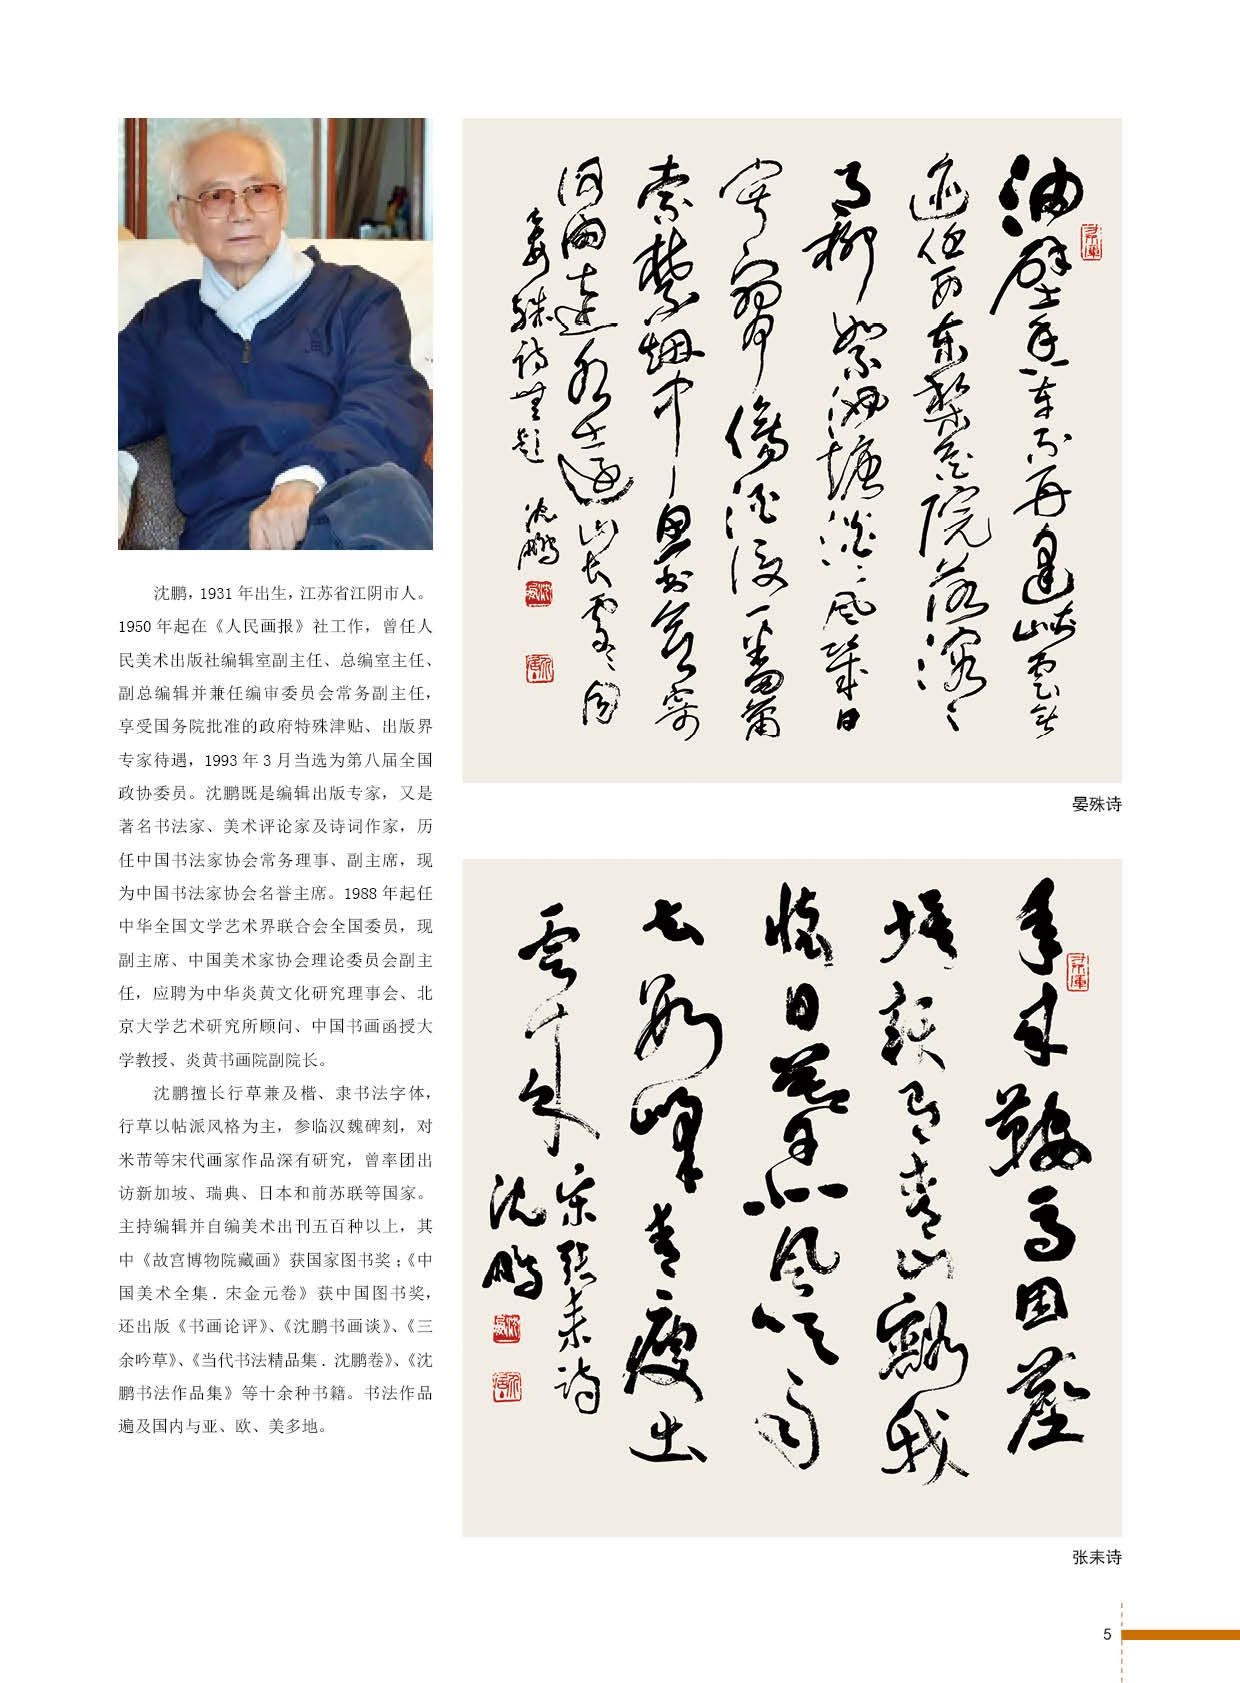 沈鹏，1931 年出生，江苏省江阴市人。
1950 年起在《人民画报》社工作，曾任人
民美术出版社编辑室副主任、总编室主任、
副总编辑并兼任编审委员会常务副主任，
享受国务院批准的政府特殊津贴、出版界
专家待遇，1993 年 3 月当选为第八届全国
政协委员。沈鹏既是编辑出版专家，又是
著名书法家、美术评论家及诗词作家，历
任中国书法家协会常务理事、副主席，现
为中国书法家协会名誉主席。1988 年起任
中华全国文学艺术界联合会全国委员，现
副主席、中国美术家协会理论委员会副主
任，应聘为中华炎黄文化研究理事会、北
京大学艺术研究所顾问、中国书画函授大
学教授、炎黄书画院副院长。
沈鹏擅长行草兼及楷、隶书法字体，
行草以帖派风格为主，参临汉魏碑刻，对
米芾等宋代画家作品深有研究，曾率团出
访新加坡、瑞典、日本和前苏联等国家。
主持编辑并自编美术出刊五百种以上，其
中《故宫博物院藏画》获国家图书奖；《中
国美术全集．宋金元卷》获中国图书奖，
还出版《书画论评》、《沈鹏书画谈》、《三
余吟草》、《当代书法精品集．沈鹏卷》、《沈
鹏书法作品集》等十余种书籍。书法作品
遍及国内与亚、欧、美多地。
油壁香車不再逢峽雲無
迹任西東梨花院落溶〻
月柳絮池塘淡〻風幾日
寂寥傷酒後一番蕭
索禁烟中魚書欲寄
何由達水遠山長處〻同
晏殊詩無題 沈鵬
晏殊诗
年来鞍馬困塵
埃賴有青山豁我
懷日暮北風吹雨
去數峰青瘦出
雲来
宋張耒詩
沈鵬
张耒诗
5